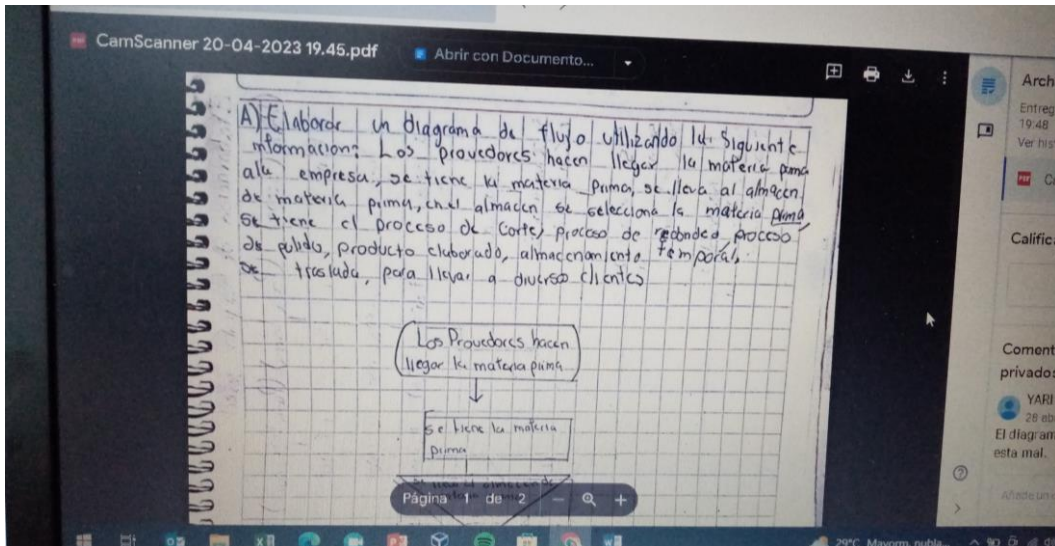 CamScanner 20-04-2023 19.45.pdf
Abrir con Documento...
A) Elaborar un diagrama de flujo utilizando la siguiente
informacion: Los provedores hacen llegar la materia prima
ala empresa, se tiene la materia prima, se lleva al almacen
de materia prima, en el almacen se selecciona la materia prima
se tiene el proceso de corte, proceso de redondeo, proceso
de pulido, producto elaborado, almacenamiento temporal,
se traslada, para llevar a diversos clientes
Los Provedores hacen
llegar la materia prima
se tiene la materia
prima
se lleva al almacen de
Página 1 de 2 - +
Arch
Entreg
19:48
Ver his
PDF
Califica
Coment
privados
YARI
28 eb
El diagram
esta mal.
Añade un
29°C Mayorm. nubla...